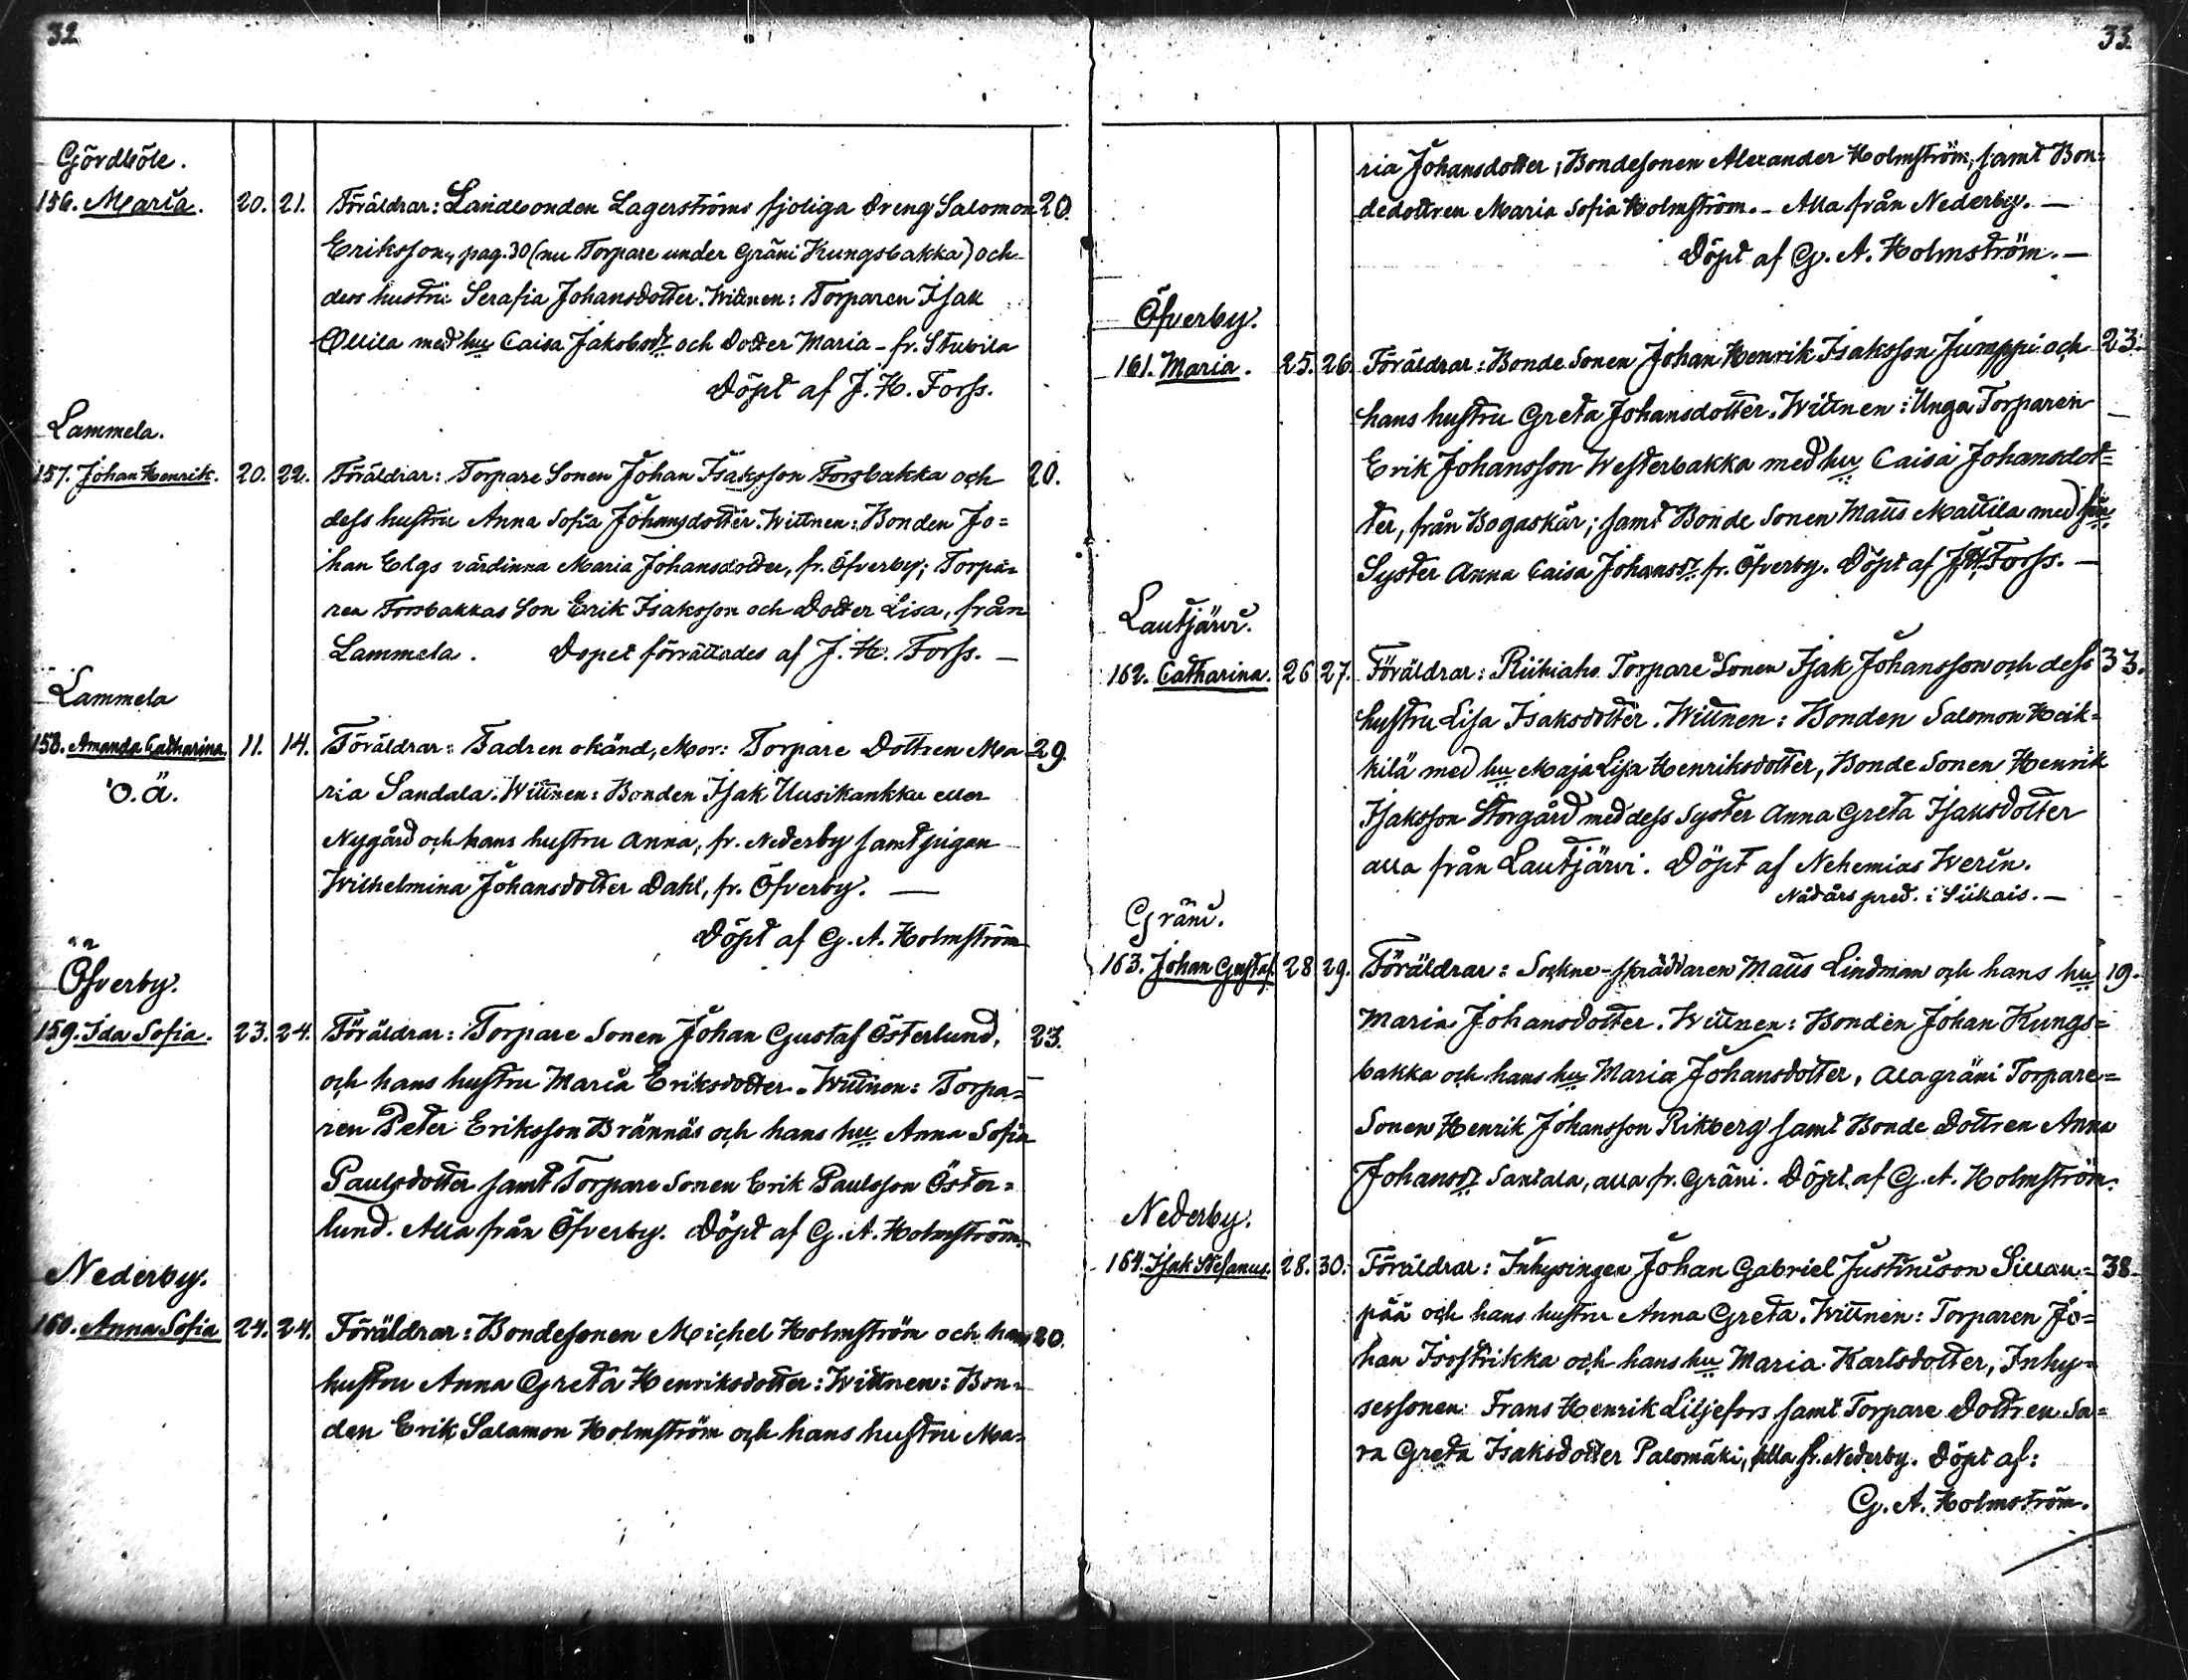 32
Gördböle.
156. Maria. 20. 21. Föräldrar: Landbonden Lagerströms fjoliga Dreng Salomon 20.
Eriksson, pag. 30 (nu Torpare under Gräni Kungsbakka) och
dess hustru Serafia Johansdotter. Wittnen: Torparen Isak
Ollila med hu Caisa Jakobsdr och Dotter Maria - fr. Stubila
Döpt af J. H. Forss.
Lammela.
157. Johan Henrik. 20. 22. Föräldrar: Torpare Sonen Johan Isaksson Forsbakka och 20.
dess hustru Anna Sofia Johansdotter. Wittnen: Bonden Jo=
han Elgs värdinna Maria Johansdotter, fr. Öfverby; Torpa=
ren Forsbakkas Son Erik Isaksson och Dotter Lisa, från
Lammela. Dopet förrättades af J. H. Forss. —
Lammela
158. Amanda Catharina. 11. 14. Föräldrar: Fadren okänd, Mor: Torpare Dottren Ma- 29.
O.Ä. ria Sandala. Wittnen: Bonden Isak Uusikankku eller
Nygård och hans hustru Anna, fr. Nederby samt pigan
Wilhelmina Johansdotter Dahl, fr. Öfverby. —
Döpt af G. A. Holmström
Öfverby.
159. Ida Sofia. 23. 24. Föräldrar: Torpare Sonen Johan Gustaf Österlund, 23.
och hans hustru Maria Eriksdotter. Wittnen: Torpa=
ren Peter Eriksson Brännäs och hans hu Anna Sofia
Paulsdotter samt Torpare Sonen Erik Paulsson Öster=
lund. Alla från Öfverby. Döpt af G. A. Holmström.
Nederby.
160. Anna Sofia 24. 24. Föräldrar: Bondesonen Michel Holmström och hans 20.
hustru Anna Greta Henriksdotter: Wittnen: Bon=
den Erik Salamon Holmström och hans hustru Ma=
33.
ria Johansdotter; Bondesonen Alexander Holmström, samt Bon=
dedottren Maria Sofia Holmström. - Alla från Nederby. —
Döpt af G. A. Holmström. —
Öfverby.
161. Maria. 25. 26. Föräldrar: Bonde Sonen Johan Henrik Isaksson Jumppi och 23.
hans hustru Greta Johansdotter. Wittnen: Unga Torparen
Erik Johansson Westerbakka med hu Caisa Johansdot=
ter, från Bogaskär; samt Bonde Sonen Matts Mattila med
Syster Anna Caisa Johansdr. fr. Öfverby. Döpt af J. H. Forss. —
Lautjärvi.
162. Catharina. 26 27. Föräldrar: Riikiaho Torpare Sonen Isak Johansson och dess 33.
hustru Lisa Isaksdotter. Wittnen: Bonden Salomon Heik=
kilä med hu Maja Lisa Henriksdotter, Bonde Sonen Henrik
Isaksson Storgård med dess Syster Anna Greta Isaksdotter
alla från Lautjärvi. Döpt af Nehemias Werin.
Nådårs pred. i Siikais. —
Gräni.
163. Johan Gustaf. 28 29. Föräldrar: Sockne-skräddaren Matts Lindman och hans hu 19.
Maria Johansdotter. Wittnen: Bonden Johan Kungs=
bakka och hans hu Maria Johansdotter, Alagräni Torpare=
Sonen Henrik Johansson Rikberg samt Bonde Dottren Anna
Johansdr Santala, alla fr. Gräni. Döpt af G. A. Holmström.
Nederby.
164. Isak Stefanus. 28. 30. Föräldrar: Inhysingen Johan Gabriel Justinison Sillan= 38.
pää och hans hustru Anna Greta. Wittnen: Torparen Jo=
han Isostrikka och hans hu Maria Karlsdotter, Inhy=
sessonen Frans Henrik Liljefors samt Torpare Dottren Sa=
ra Greta Isaksdotter Palomäki, alla fr. Nederby. Döpt af:
G. A. Holmström.